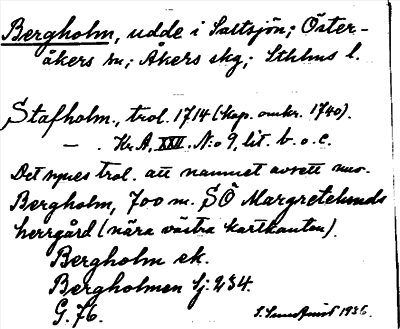 Bergholm, udde i Saltsjön; Öster-
åkers sn; Åkers skg; Sthlms l.
Stafholm, trol. 1714 (kop. omkr. 1740).
— . Kr. A, XXV. N:o 9, lit. b. o. c.
Det synes trol. att namnet avsett nuv.
Bergholm, 700 m. SÖ Margretelunds
herrgård (nära västra kartkanten).
Bergholm ek.
Bergholmen Sj. 234.
G. 76.
1936.